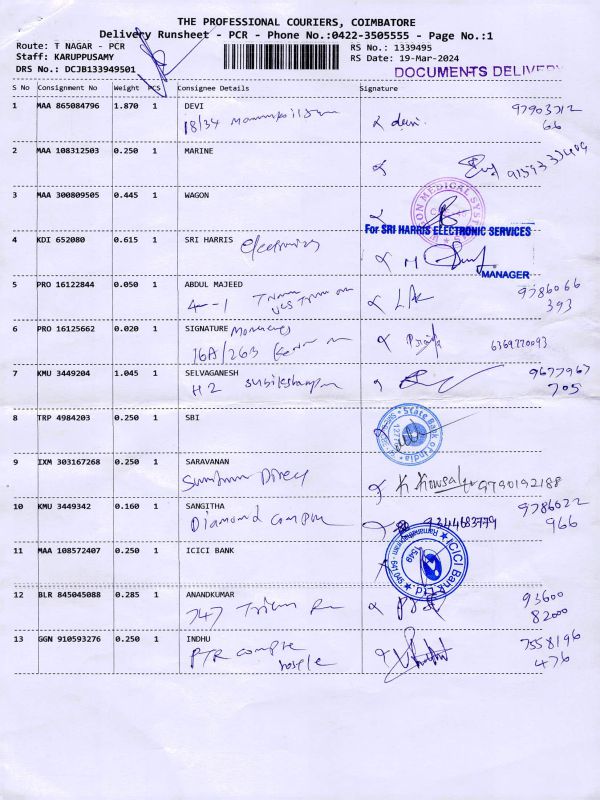 THE PROFESSIONAL COURIERS, COIMBATORE
Delivery Runsheet - PCR - Phone No.:0422-3505555 - Page No.:1
Route: T NAGAR - PCR
RS No.: 1339495
Staff: KARUPPUSAMY
RS Date: 19-Mar-2024
DRS No.: DCJB133949501
DOCUMENTS DELIVERY
S No Consignment No Weight PCS Consignee Details Signature
1 MAA 865084796 1.870 1 DEVI
18/34
devi.
97903712
66
2 MAA 108312503 0.250 1 MARINE
3 MAA 300809505 0.445 1 WAGON
For SRI HARRIS ELECTRONIC SERVICES
4 KDI 652080 0.615 1 SRI HARRIS
MANAGER
5 PRO 16122844 0.050 1 ABDUL MAJEED
9786066
393
6 PRO 16125662 0.020 1 SIGNATURE
16A/263
6369220093
7 KMU 3449204 1.045 1 SELVAGANESH
H2
9677967
705
8 TRP 4984203 0.250 1 SBI
State Bank of India
9 IXM 303167268 0.250 1 SARAVANAN
9790192188
10 KMU 3449342 0.160 1 SANGITHA
Diamond
9344683779
9786022
966
11 MAA 108572407 0.250 1 ICICI BANK
ICICI Bank Ltd
12 BLR 845045088 0.285 1 ANANDKUMAR
747
93600
82000
13 GGN 910593276 0.250 1 INDHU
PTR
7558196
476